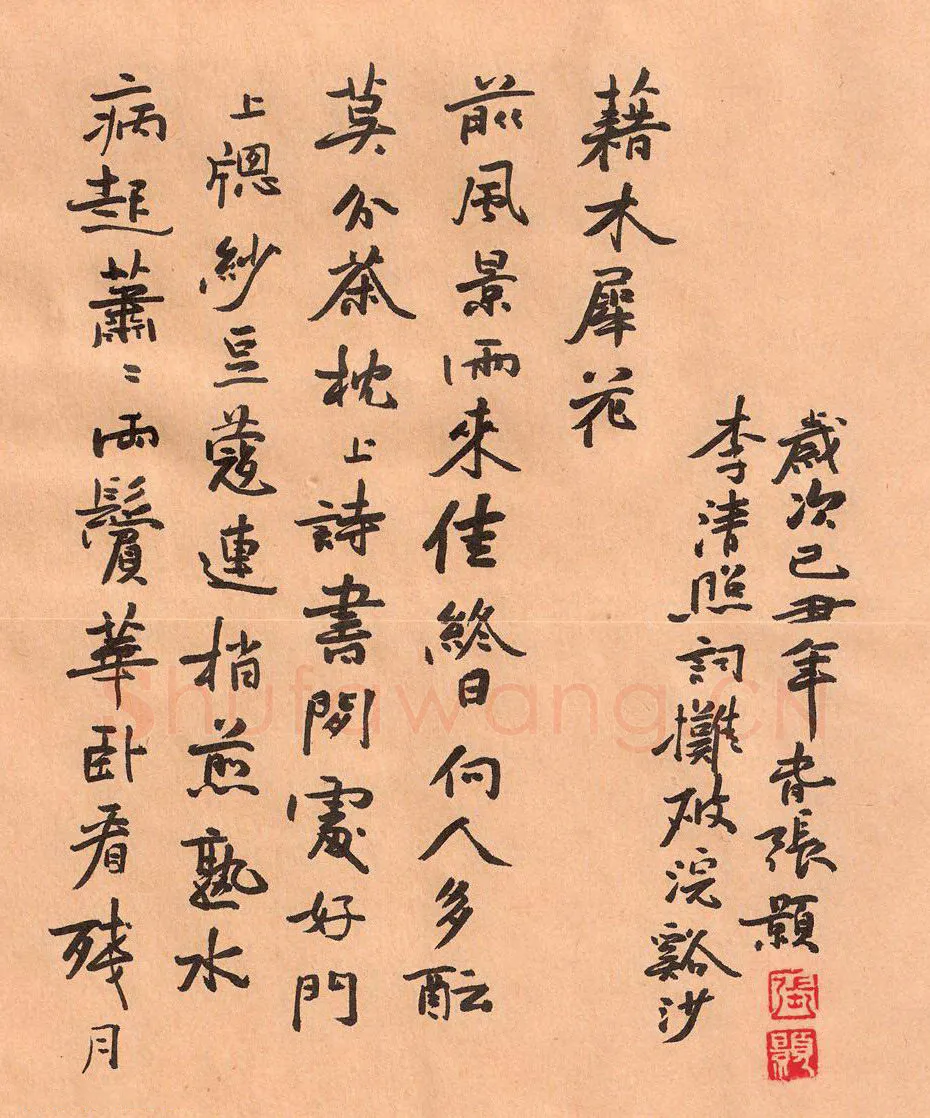 病起蕭〻兩鬢華卧看殘月
上牕紗豆蔻連梢煎熟水
莫分茶枕上詩書閑處好門
前風景雨來佳終日向人多醖
藉木犀花
李清照詞攤破浣谿沙
歲次己丑年春張顥
張顥
Shufawang.CN